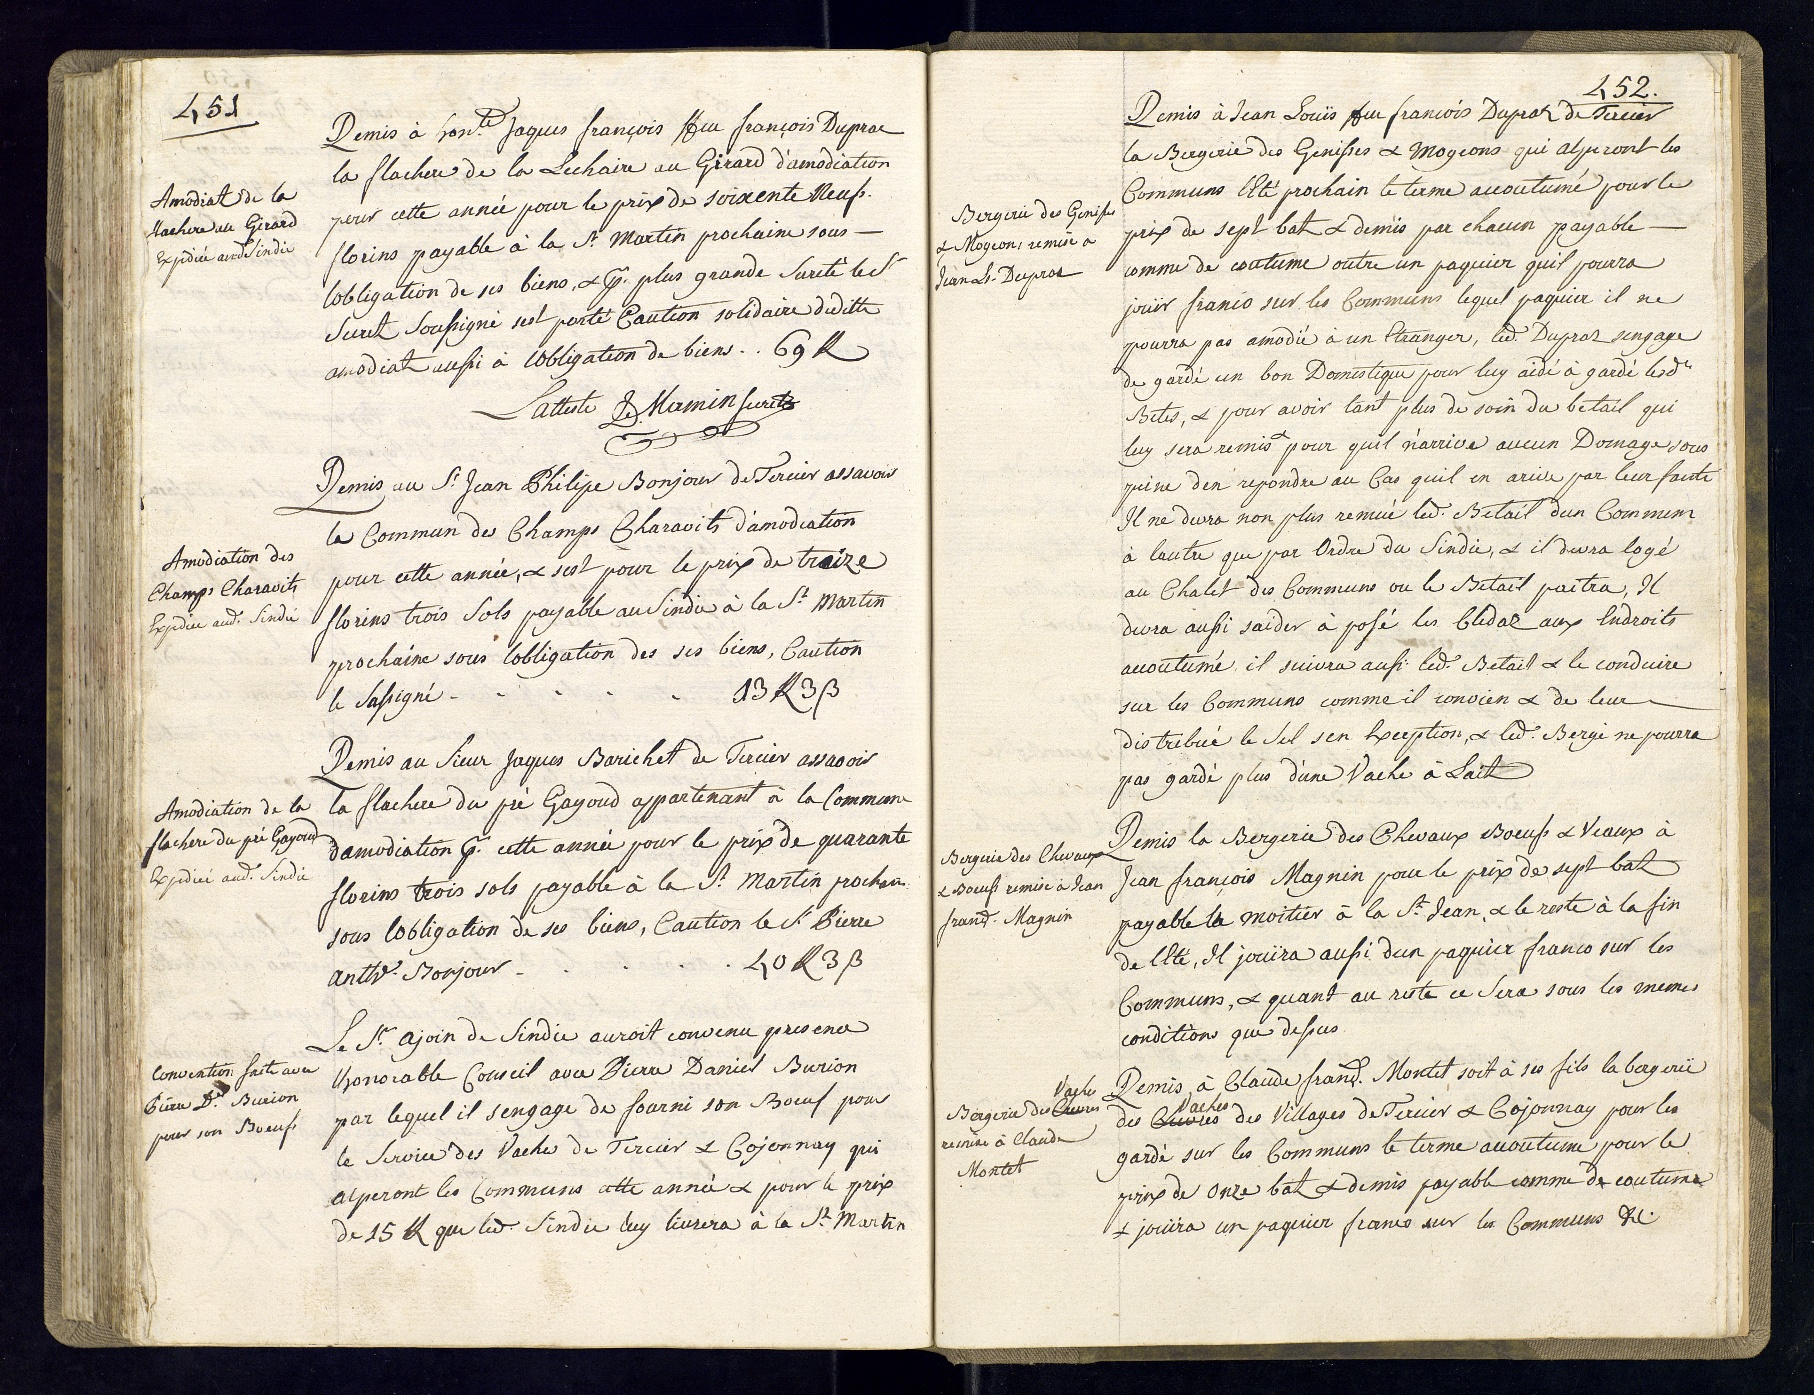 451
Amodiat de la
flachere au Girard
Expédiée aud. Sindic
Remis à hon.te Jaques françois ffeu françois Dupraz
la flachere de la Lechaire au Girard d'amodiation
pour cette année pour le prix de soixente Neuf.
florins payable à la St. Martin prochaine sous
lobligation de ses biens, & pr. plus grande Sureté le Sr
Suret Soussigné sest porté Caution solidaire dudit
amodiat aussi à lobligation de biens .. 69 fl
Latteste Mamin Suret
Amodiation des
Champs Charavits
Expédiée aud. Sindic
Remis au Sr. Jean Philipe Bonjour de Tercier assavoir
le Commun de Champs Charavits d'amodiation
pour cette année, & sest pour le prix de traize
florins trois Sols payable au Sindic à la St. Martin
prochaine sous lobligation des ses biens, Caution
le Sassigné - - - - - 13 fl 3 β
Amodiation de la
flachere du pré Gayoud
Expédiée aud. Sindic
Remis au Sieur Jaques Barichet de Tercier assavoir
la flachere du pré Gayoud appartenant à la Commune
damodiation pr. cette année pour le prix de quarante
florins trois sols payable à la St. Martin prochain
sous lobligation de ses biens, Caution le Sr Pierre
anth. Bonjour - . . . . 40 fl 3 β
Convention faite avec
Pierre Dl. Burion
pour son Boeuf
Le Sr. ajoin de Sindic auroit convenu presence
Lhonorable Conseil avec Pierre Daniel Burion
par lequel il sengage de fourni son Boeuf pour
le Service des Vache de Tercier & Cojonnay qui
alperont les Communs cette année & pour le prix
de 15 fl que led. Sindic luy livrera à la St. Martin
452.
Bergerie des Genisses
& Mogeons remise a
Jean Ls. Dupraz
Remis à Jean Louis ffeu francois Dupraz de Tercier
la Bergerie des Genisses & Mogeons qui alperont les
Communs lEté prochain le terme accoutumé pour le
prix de sept bat & demis par chacun payable
comme de coutume outre un paquier quil pourra
jouir franco sur les Communs lequel paquier il ne
pourra pas amodié à un Etranger, led. Dupraz sengage
de gardé un bon Domestique pour luy aidé à gardé lesd.
Betes, & pour avoir tant plus de soin du betail qui
luy sera remis & pour quil n'arrive aucun Domage sous
peine d'en répondre au Cas quil en arive par leur faute
Il ne devra non plus remué led. Betail dun Commun
à lautre que par Ordre du Sindic, & il devra logé
au Chalet des Communs ou le Betail paitra, Il
devra aussi saider à posé les Cledaz aux Endroits
accoutumé, il suivra aussi led. Betail & le conduire
sur les Communs comme il convien & de leur
distribué le Sel sen Exception, & led. Bergé ne pourra
pas gardé plus dune Vache à Lait
Bergerie des Chevaux
& Boeufs remise à Jean
franç. Magnin
Remis la Bergerie des Chevaux Boeufs & Veaux à
Jean françois Magnin pour le prix de sept bat
payable la moitier à la St. Jean, & le reste à la fin
de lEté, Il jouira aussi dun paquier franco sur les
Communs, & quant au reste ce Sera sous les memes
conditions que dessus
Vache
Bergerie des Chevres
remise à Claude
Montet
Remis, à Claude franç. Montet soit à ses fils la bergerie
Vaches
des Chevres des Villages de Tercier & Cojonnay pour les
gardé sur les Communs le terme accoutume pour le
prix de onze bat & demis payable comme de coutume
& jouira un paquier franco sur les Communs &c.